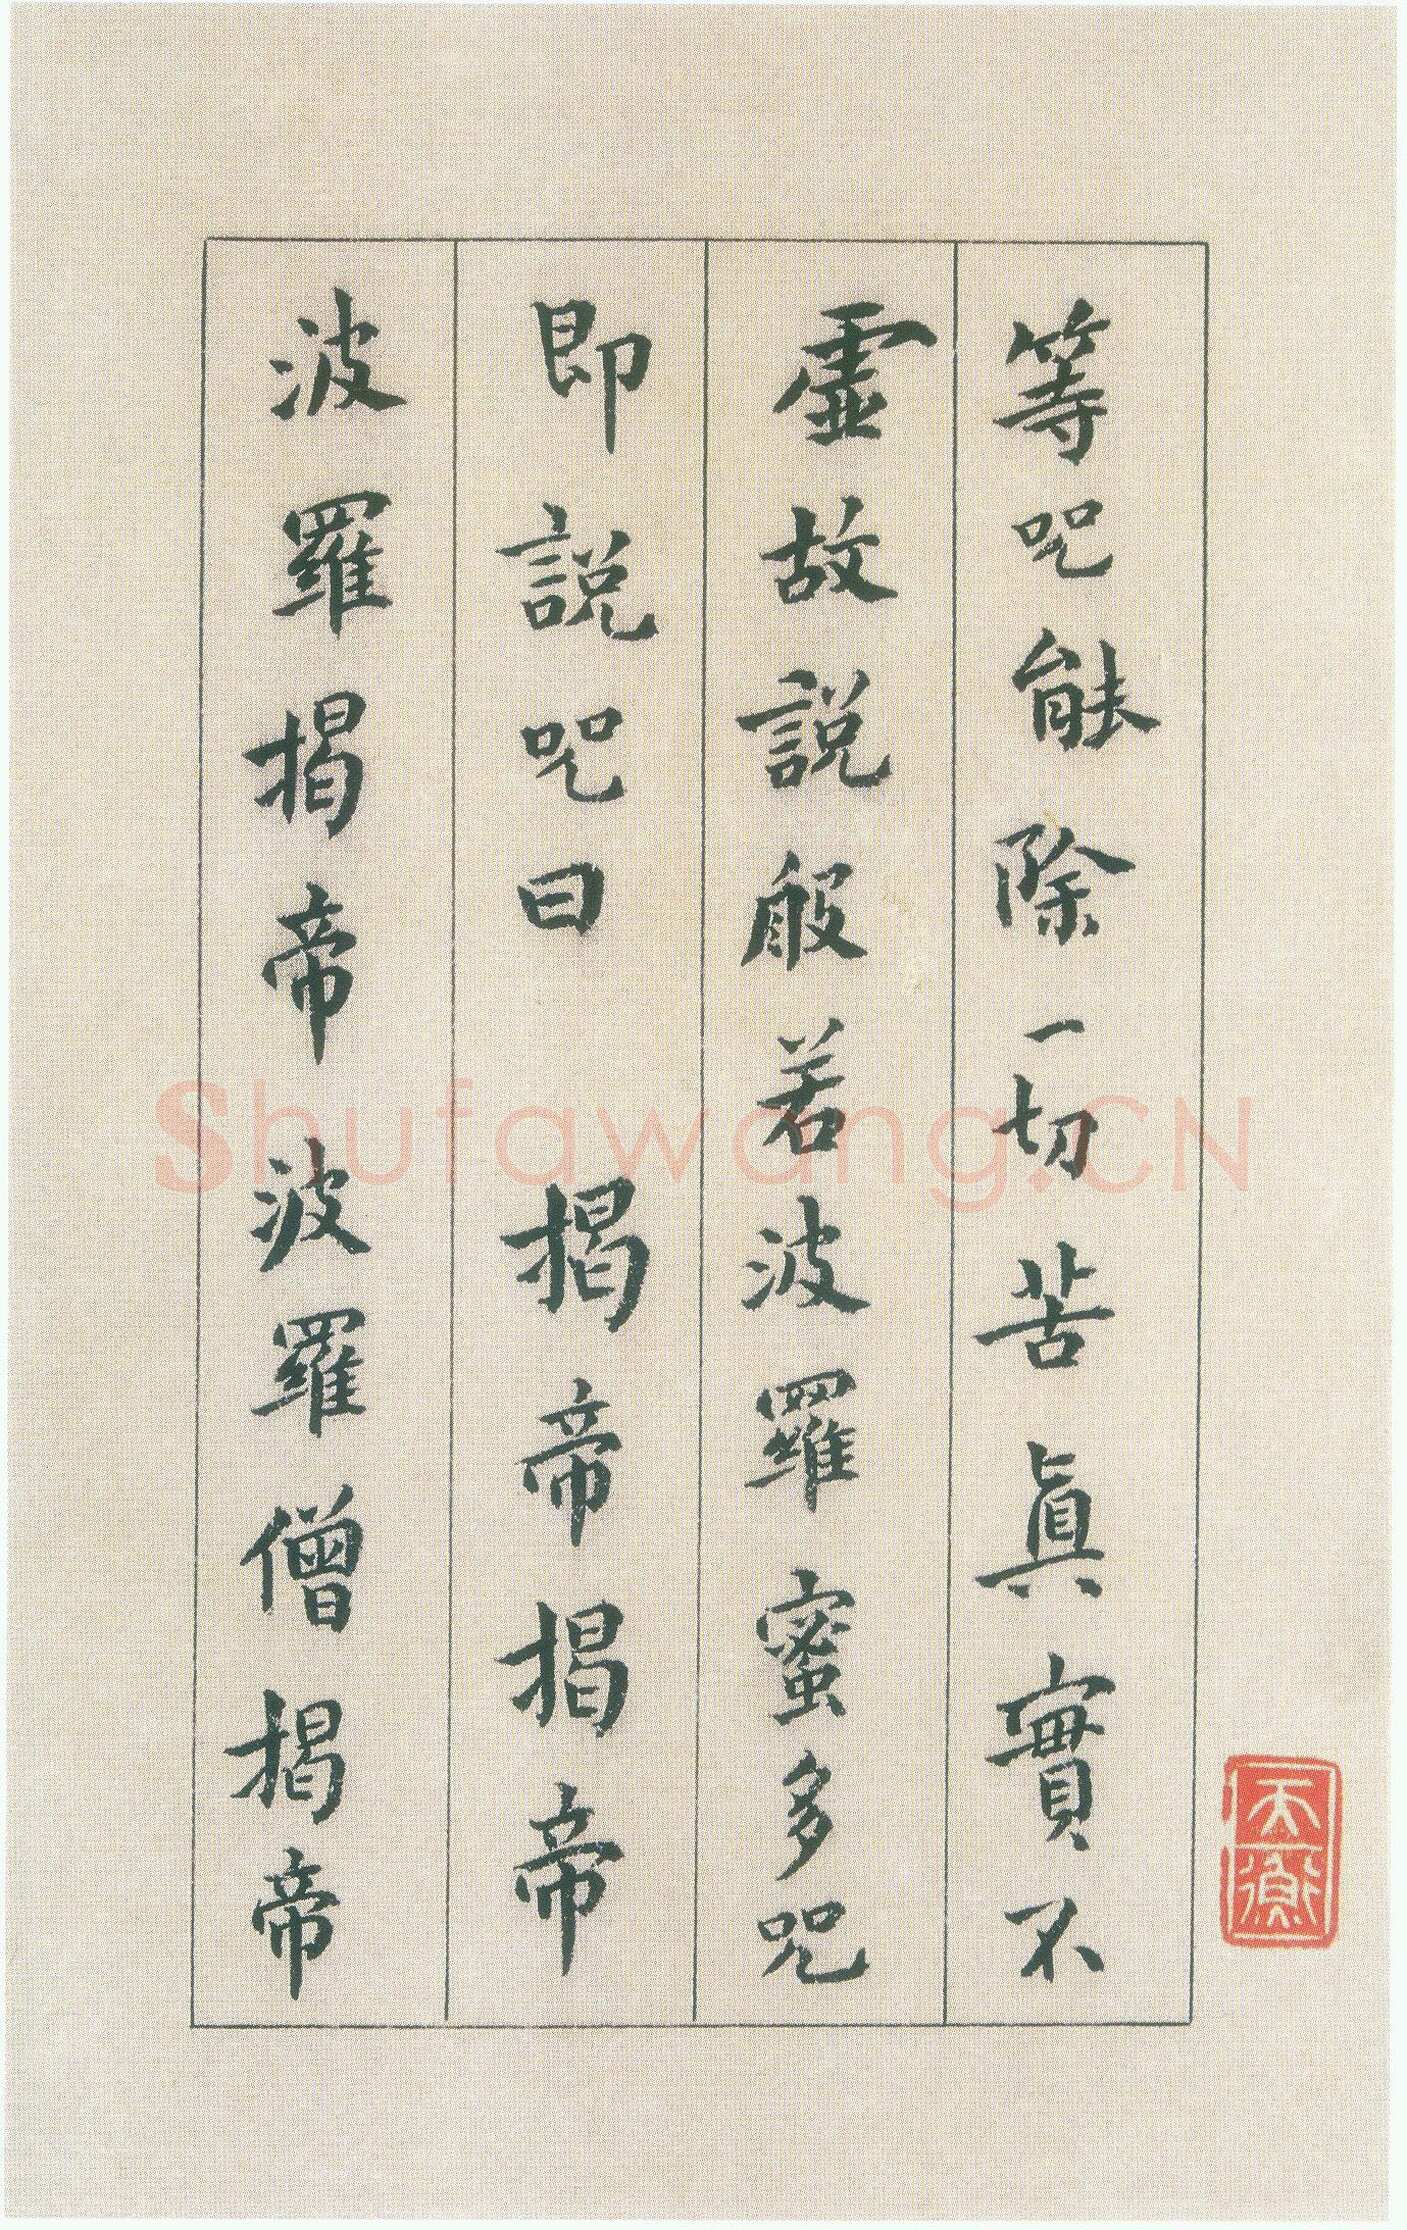 等呪能除一切苦眞實不
虛故說般若波羅蜜多呪
即說呪曰　揭帝揭帝
波羅揭帝波羅僧揭帝
天衡
Shufawang.CN